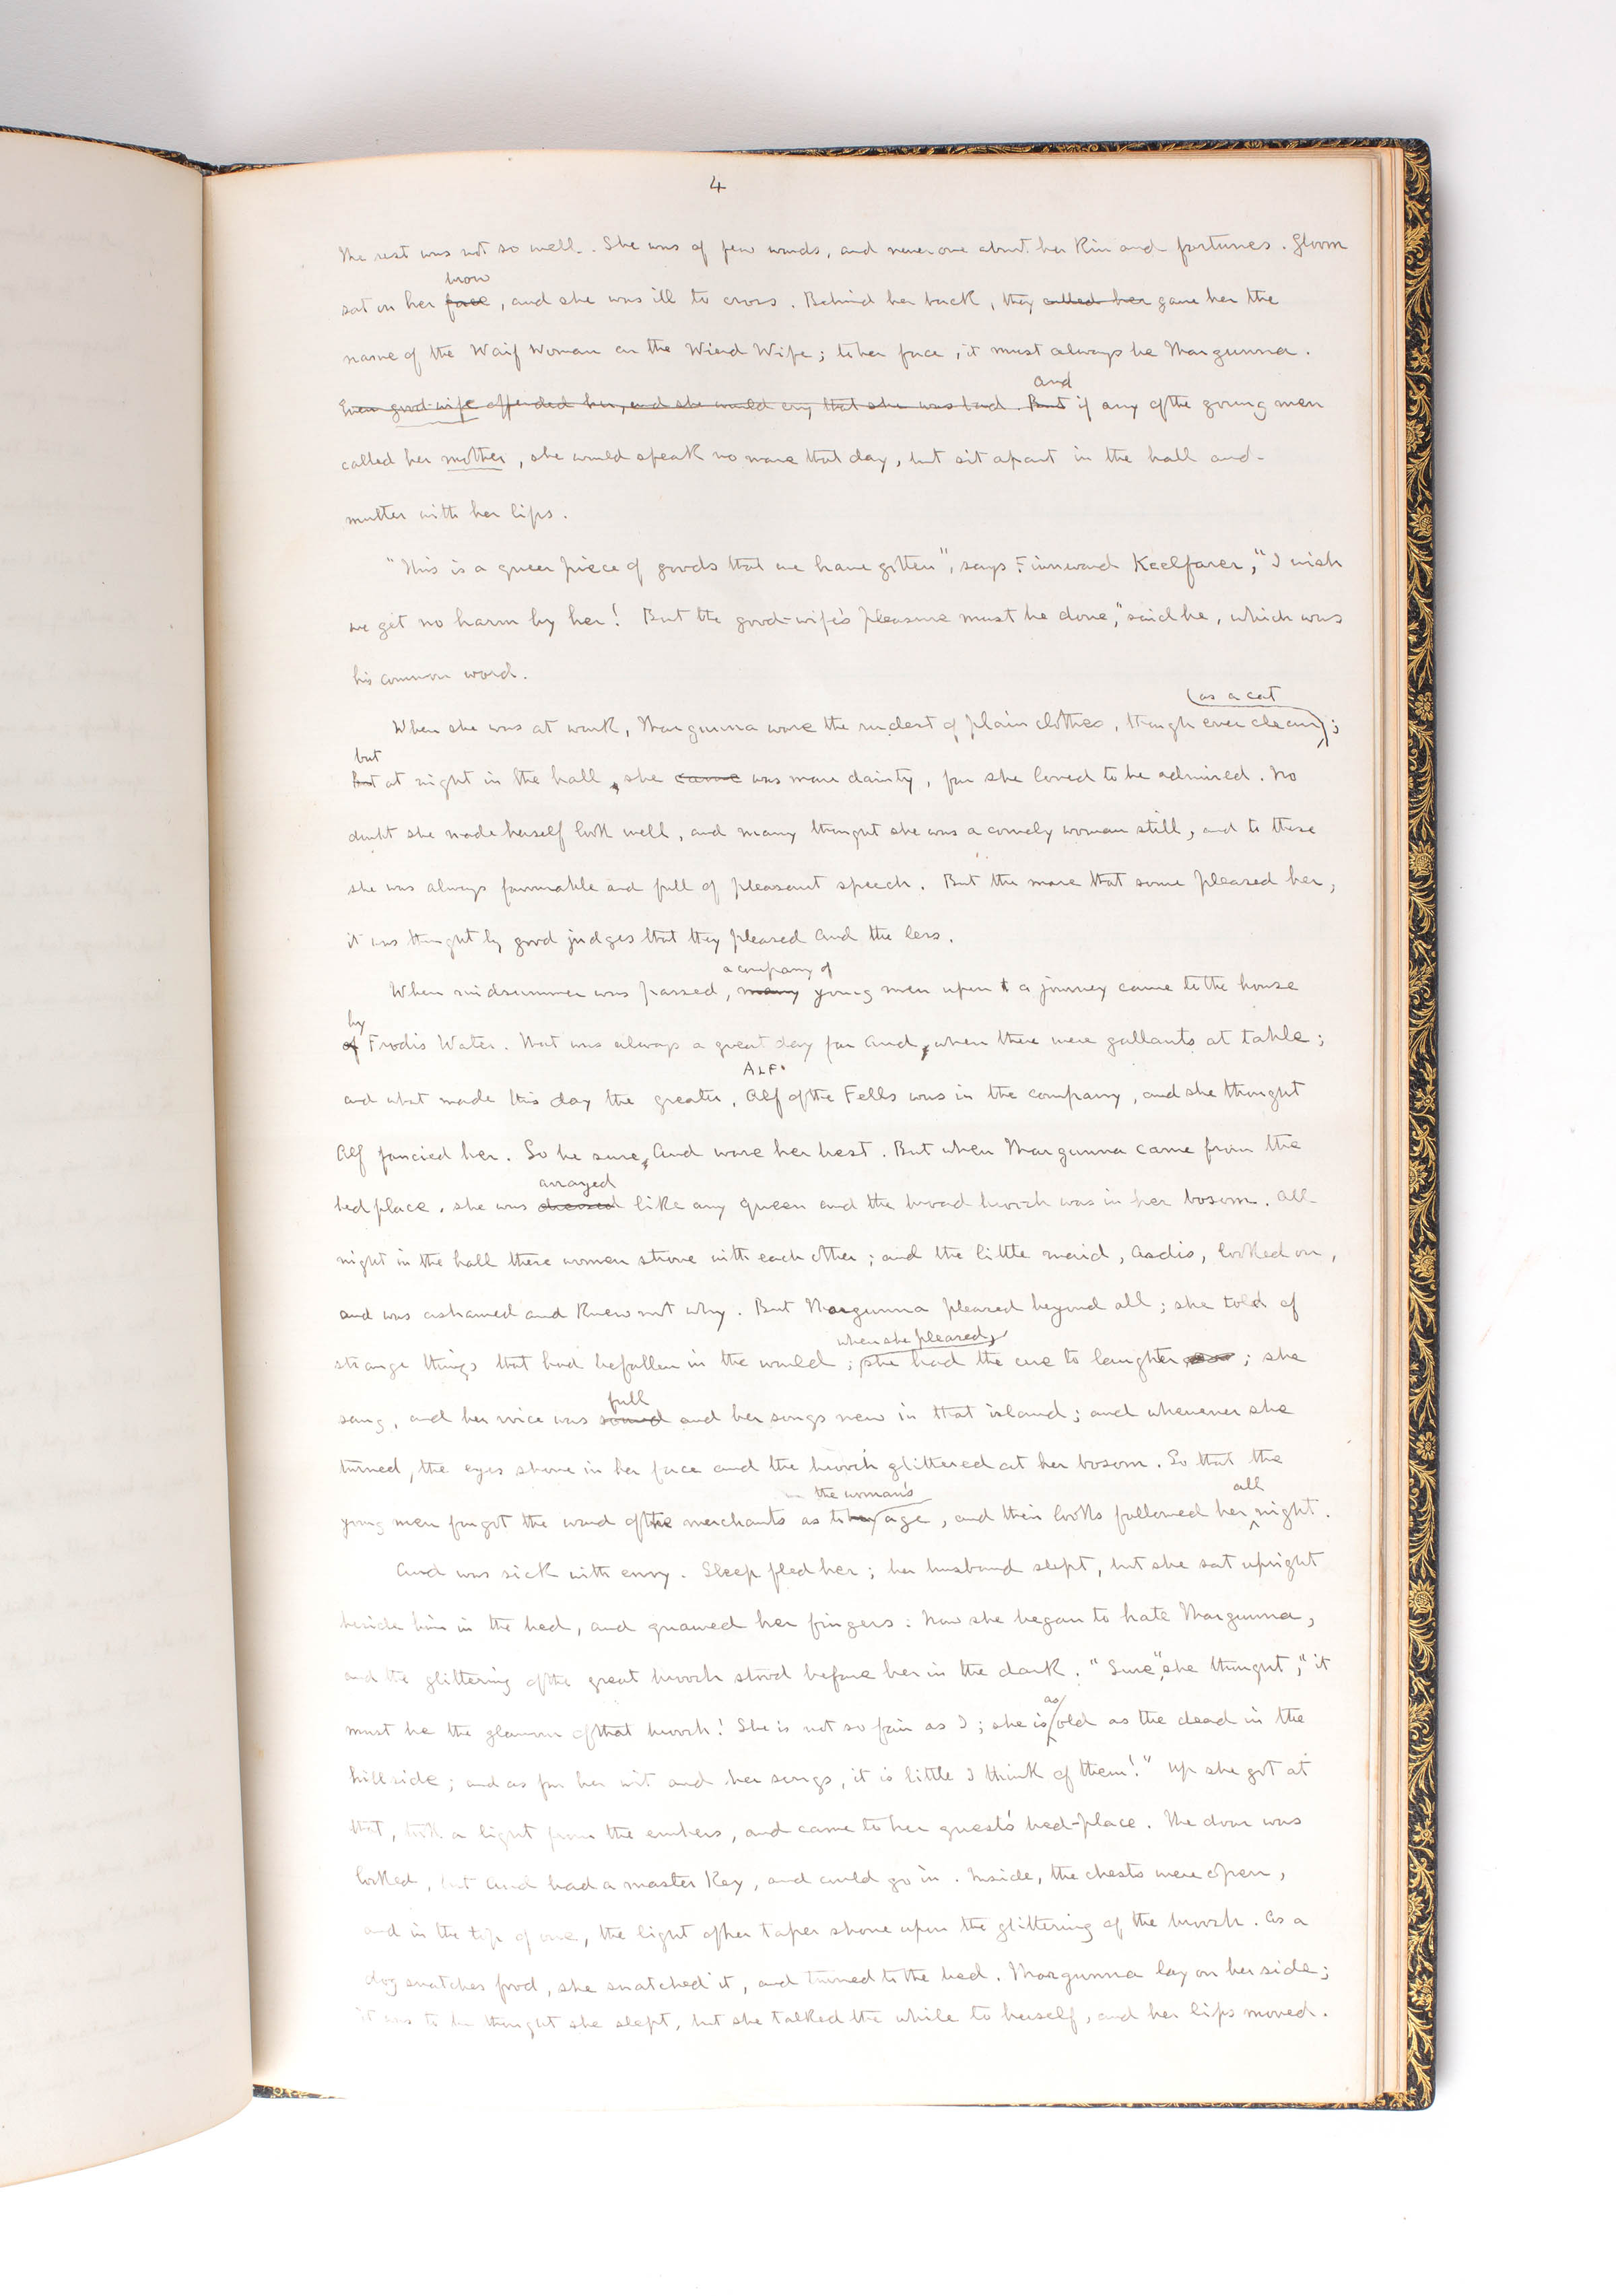 4
The rest was not so well. She was of few words, and never one about her kin and fortunes. Gloom
brow
sat on her face, and she was ill to cross. Behind her back, they called her gave her the
name of the Waif Woman or the Wind Wife; to her face, it must always be Thorgunna.
and
Even good-wife offended her, and she would cry that she was But if any of the young men
called her mother, she would speak no more that day, but sit apart in the hall and
mutter with her lips.
"This is a queer piece of goods that we have gotten", says Finnward Keelfarer, "I wish
we get no harm by her! But the good-wife's pleasure must be done," said he, which was
his common word.
(as a cat
When she was at work, Thorgunna wore the rudest of plain clothes, though ever clean);
but
But at night in the hall, she came was more dainty, for she loved to be admired. No
doubt she made herself look well, and many thought she was a comely woman still, and to those
she was always favourable and full of pleasant speech. But the more that some pleased her,
it was thought by good judges that they pleased Aud the less.
a company of
When midsummer was passed, many young men upon a journey came to the house
by
of Frodis Water. That was always a great day for Aud, when there were gallants at table;
ALF.
and what made this day the greater, Alf of the Fells was in the company, and she thought
Alf fancied her. So be sure, Aud wore her best. But when Thorgunna came from the
arrayed
bed place, she was dressed like any queen and the broad brooch was in her bosom. All
night in the hall these women strove with each other; and the little maid, Asdis, looked on,
and was ashamed and knew not why. But Thorgunna pleased beyond all; she told of
when she pleased,
strange things that had befallen in the world; she had the cue to laughter; she
full
sang, and her voice was sound and her songs new in that island; and whenever she
turned, the eyes shone in her face and the brooch glittered at her bosom. So that the
the woman's all
young men forgot the word of the merchants as to her age, and their looks followed her night.
Aud was sick with envy. Sleep fled her; her husband slept, but she sat upright
beside him in the bed, and gnawed her fingers: Now she began to hate Thorgunna,
and the glittering of the great brooch stood before her in the dark. "Sure," she thought, "it
as
must be the glamour of that brooch! She is not so fair as I; she is old as the dead in the
hillside; and as for her wit and her songs, it is little I think of them!" Up she got at
that, took a light from the embers, and came to her guest's bed-place. The door was
locked, but Aud had a master key, and could go in. Inside, the chests were open,
and in the top of one, the light of her taper shone upon the glittering of the brooch. As a
dog snatches food, she snatched it, and turned to the bed. Thorgunna lay on her side;
it was to be thought she slept, but she talked the while to herself, and her lips moved.